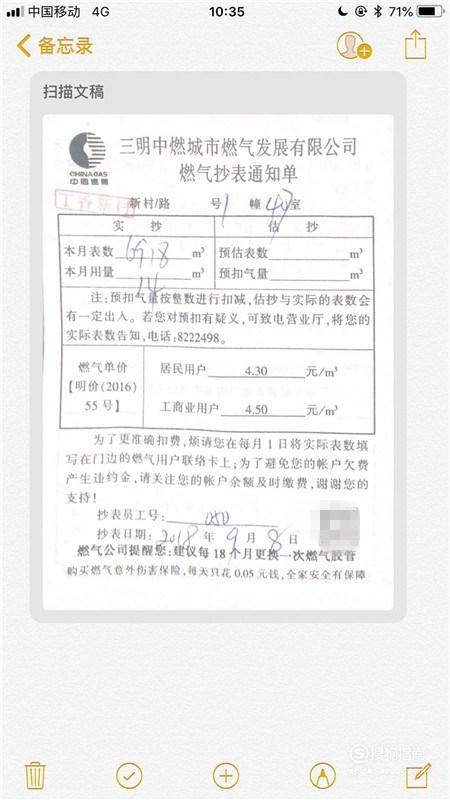 中国移动 4G 10:35 71%
备忘录
扫描文稿
三明中燃城市燃气发展有限公司
燃气抄表通知单
CHINAGAS
中国燃气
丁香新村 新村/路 号 1 幢 室
实 抄 估 抄
本月表数 6918 m³ 预估表数 m³
本月用量 14 m³ 预扣气量 m³
注:预扣气量按整数进行扣减,估抄与实际的表数会
有一定出入。若您对预扣有疑义,可致电营业厅,将您的
实际表数告知,电话:8222498。
燃气单价
【明价(2016)
55号】
居民用户 4.30 元/m³
工商业用户 4.50 元/m³
为了更准确扣费,烦请您在每月1日将实际表数填
写在门边的燃气用户联络卡上;为了避免您的帐户欠费
产生违约金,请关注您的帐户余额及时缴费,谢谢您的
支持!
抄表员工号: 050
抄表日期: 2018 年 9 月 8 日
燃气公司提醒您:建议每18个月更换一次燃气胶管
购买燃气意外伤害保险,每天只花0.05元钱,全家安全有保障